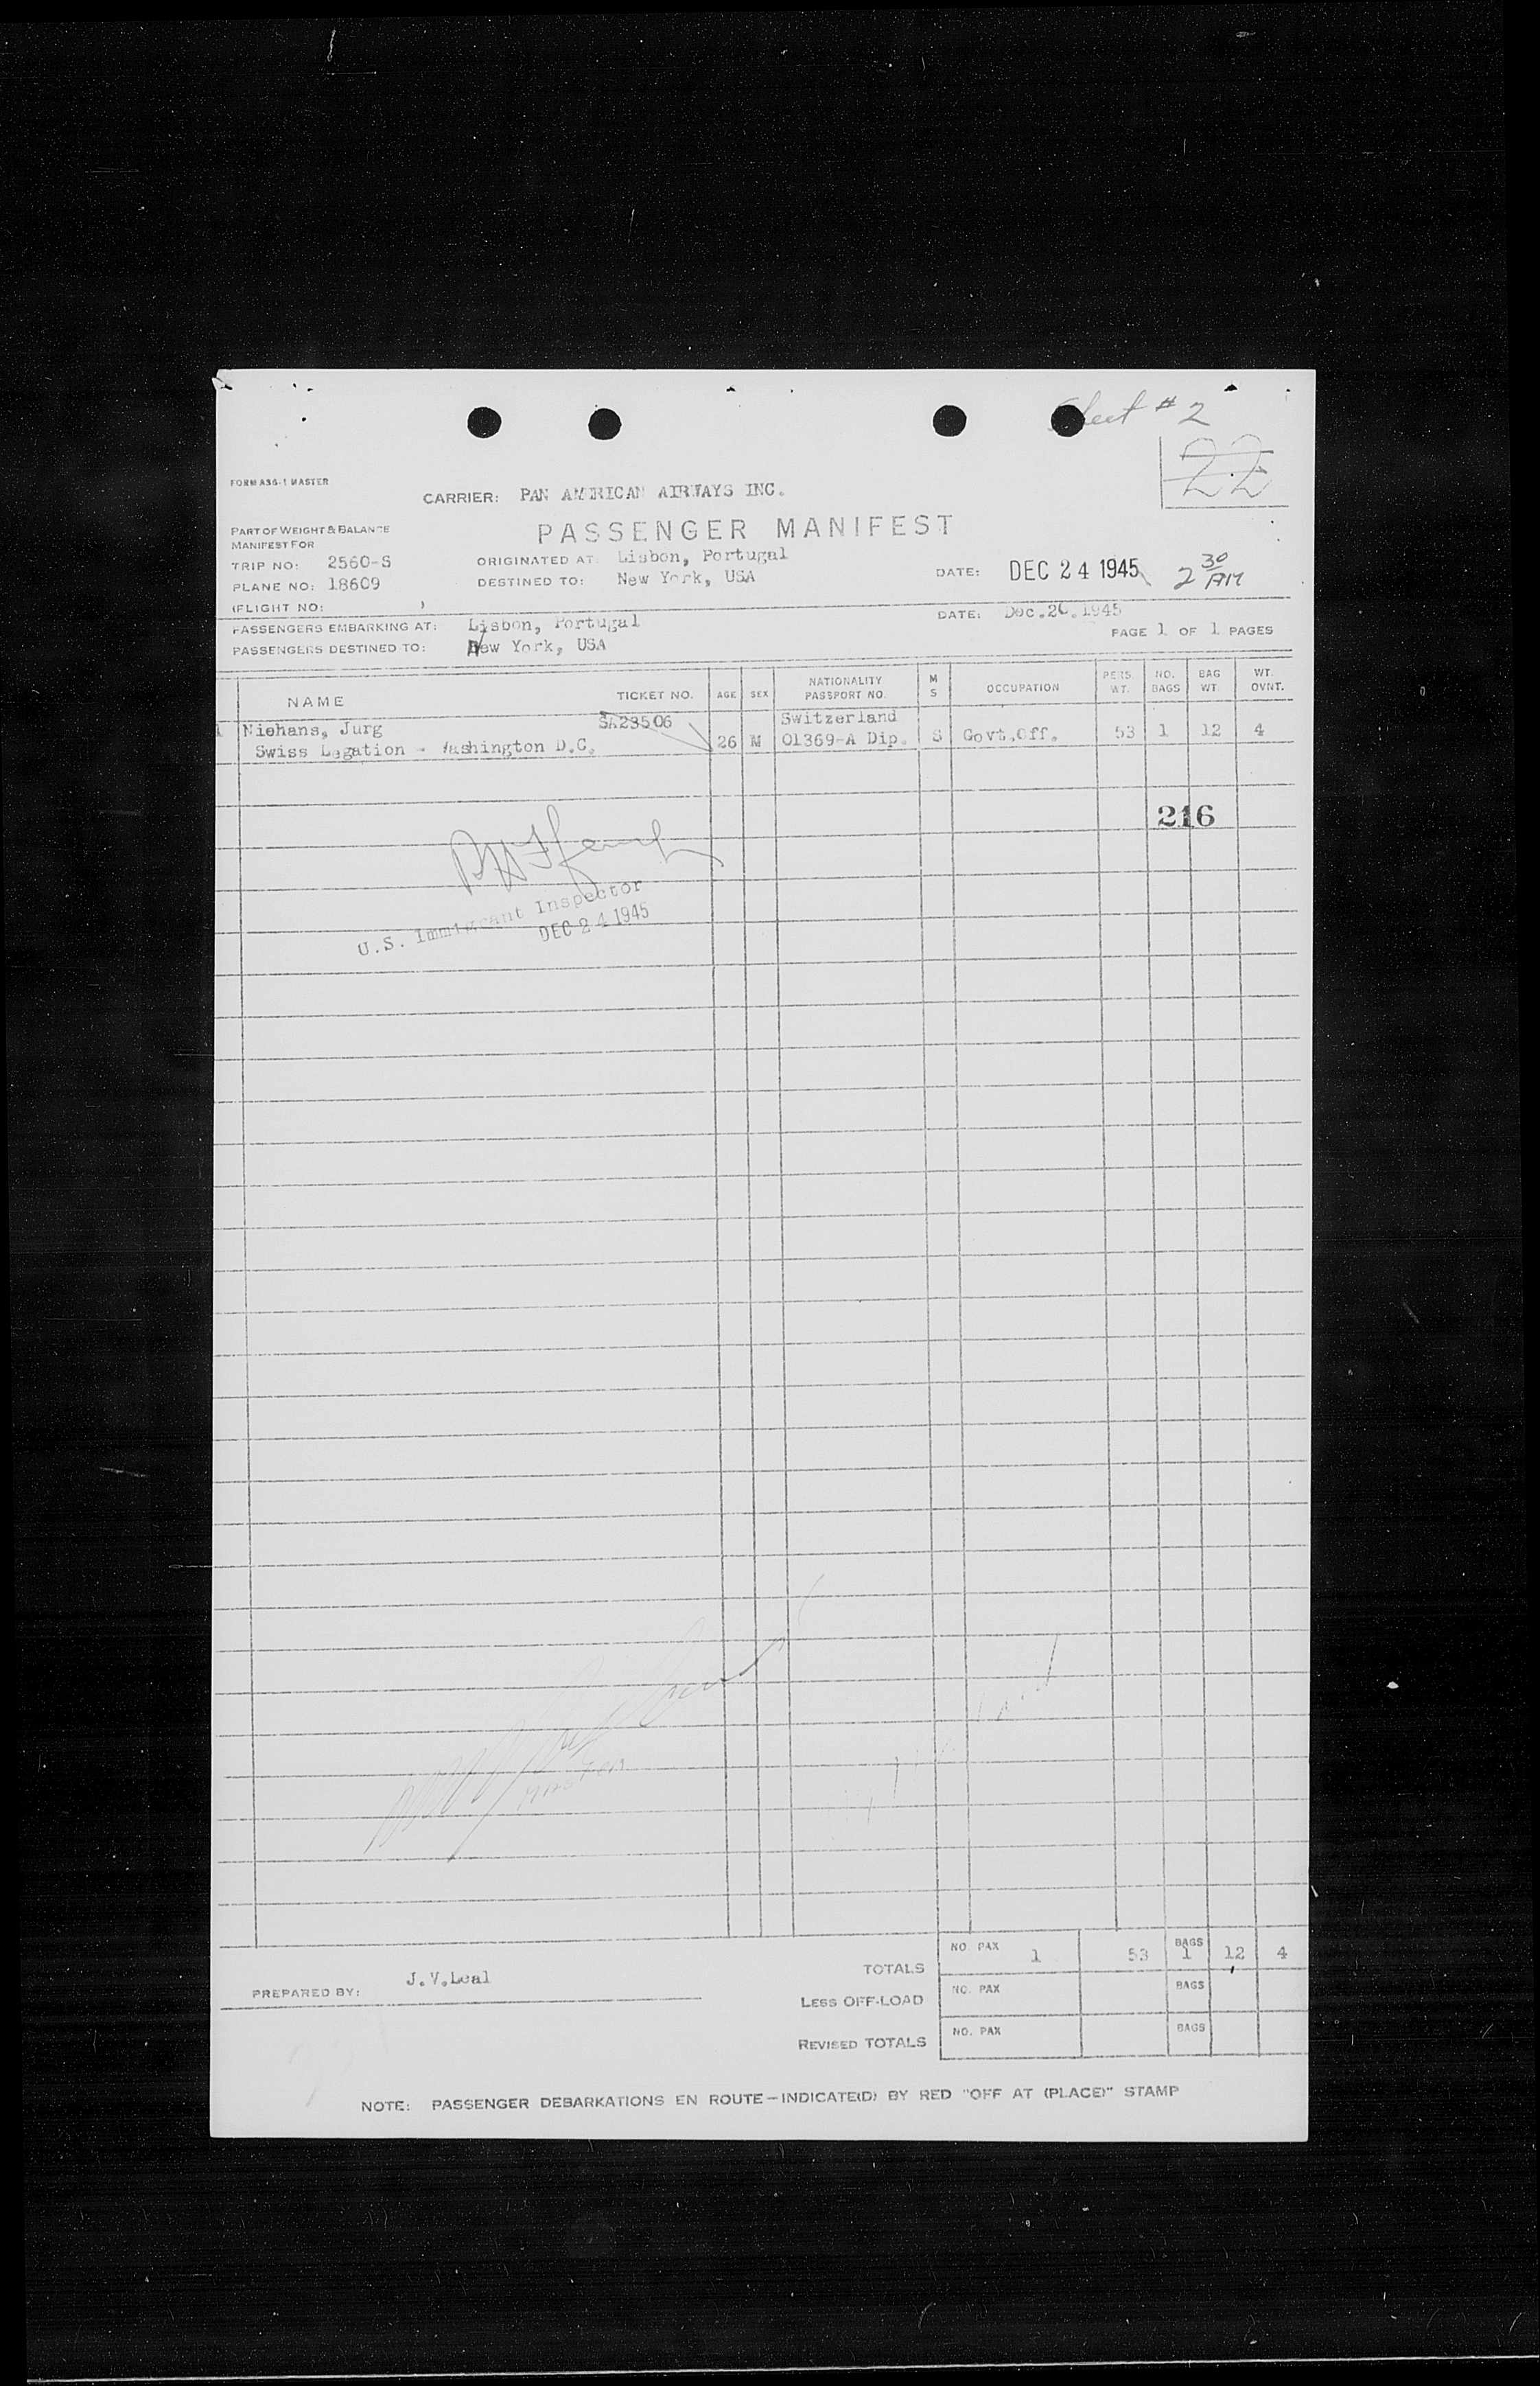 Sheet # 2
22
FORM A36-1 MASTER
CARRIER: PAN AMERICAN AIRWAYS INC.
PART OF WEIGHT & BALANCE
MANIFEST FOR
PASSENGER MANIFEST
TRIP NO: 2560-S
ORIGINATED AT: Lisbon, Portugal
PLANE NO: 18609
DESTINED TO: New York, USA
DATE: DEC 24 1945 2 30 AM
(FLIGHT NO: )
PASSENGERS EMBARKING AT: Lisbon, Portugal
DATE: Dec. 1945
PASSENGERS DESTINED TO: New York, USA
PAGE 1 OF 1 PAGES
NAME TICKET NO. AGE SEX NATIONALITY PASSPORT NO. M S OCCUPATION PERS. WT. NO. BAGS BAG WT. WT. OVNT.
1 Niehans, Jurg SA23506 Switzerland
Swiss Legation - Washington D.C. 26 M 01369-A Dip. S Govt.Off. 53 1 12 4
216
U.S. Immigrant Inspector
DEC 24 1945
TOTALS NO. PAX 1 53 BAGS 1 12 4
PREPARED BY: J.V.Leal
LESS OFF-LOAD NO. PAX BAGS
REVISED TOTALS NO. PAX BAGS
NOTE: PASSENGER DEBARKATIONS EN ROUTE—INDICATE(D) BY RED "OFF AT (PLACE)" STAMP